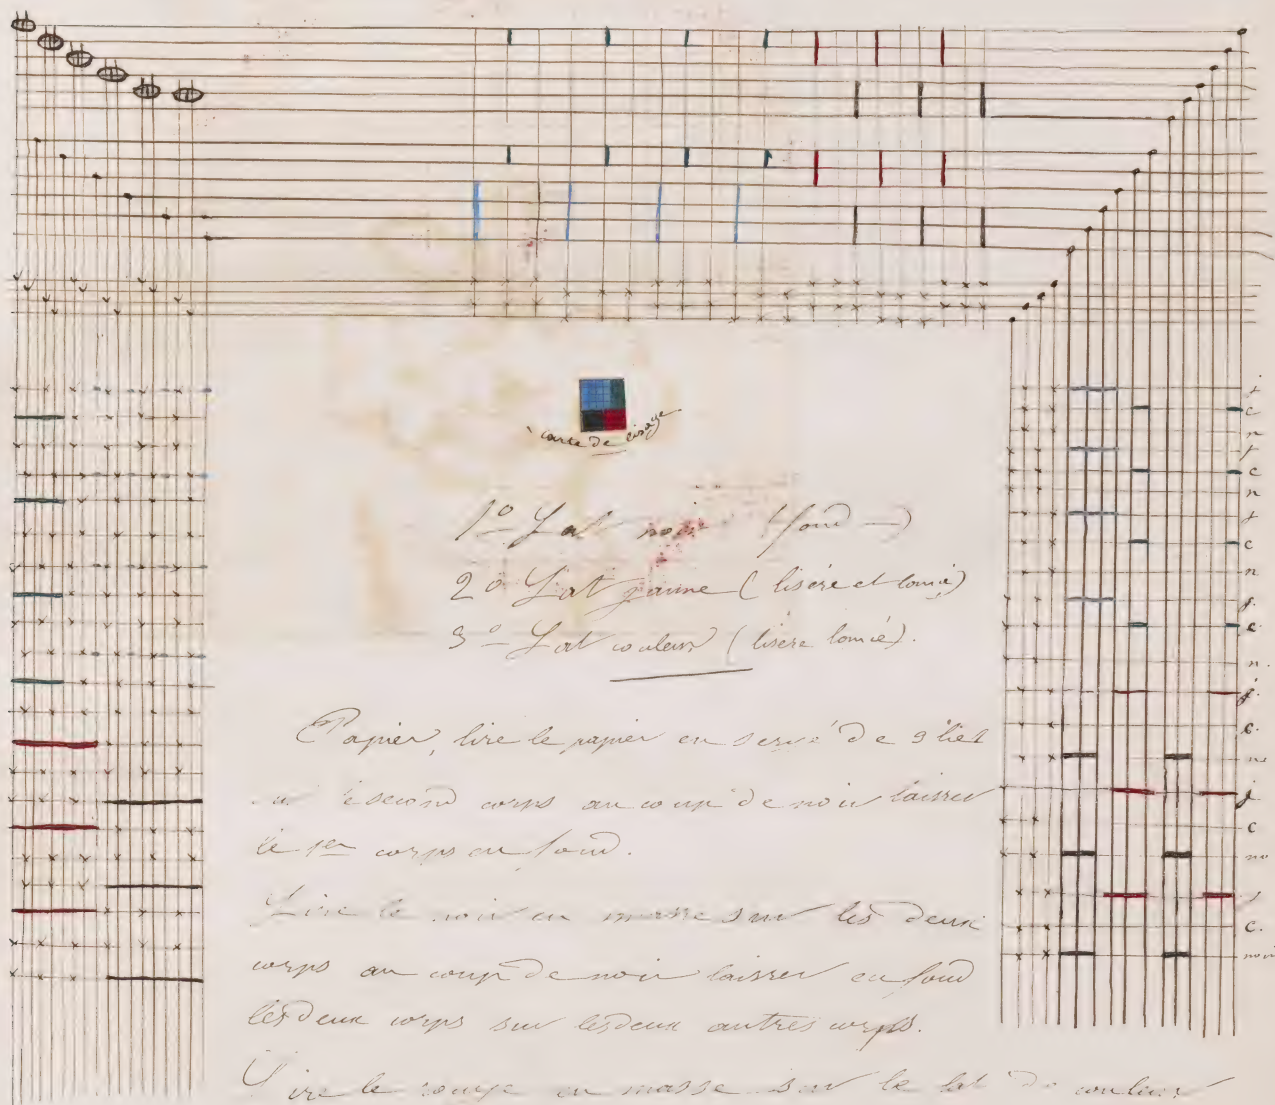 carte de lisage
1º Lat noir (fond —)
2º Lat jaune (liséré et lancé)
3º Lat couleur (liseré lancé).
Papier, lire le papier en de
second corps au coup de noir laisser
le 1er corps en fond.
Lire le noir en masse sur les deux
corps au coup de noir laisser en fond
les deux corps sur les deux autres corps.
Lire le rouge en masse sur le lat de couleur
j
c
n
j
c
n
j
c
n
j.
c.
n.
j.
c.
no
j
c
no
j
c.
noir